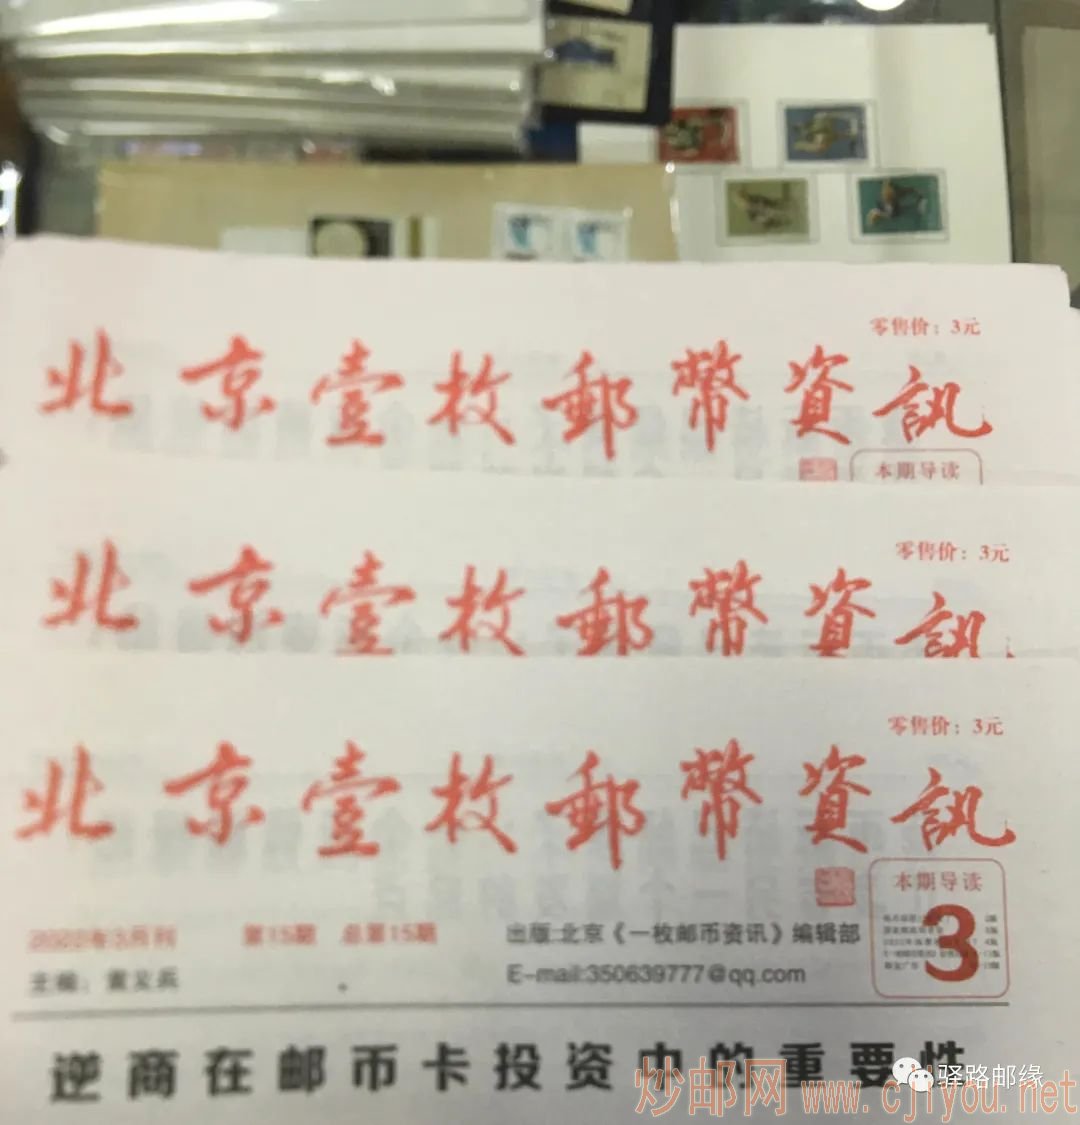 零售价：3元
北京壹枚郵幣資訊
本期导读
零售价：3元
北京壹枚郵幣資訊
零售价：3元
北京壹枚郵幣資訊
本期导读
3
2022年3月刊 第15期 总第15期
出版:北京《一枚邮币资讯》编辑部
主编：黄义兵
E-mail:350639777@qq.com
逆商在邮币卡投资中的重要性
驿路邮缘
炒邮网 www.cjiyou.net